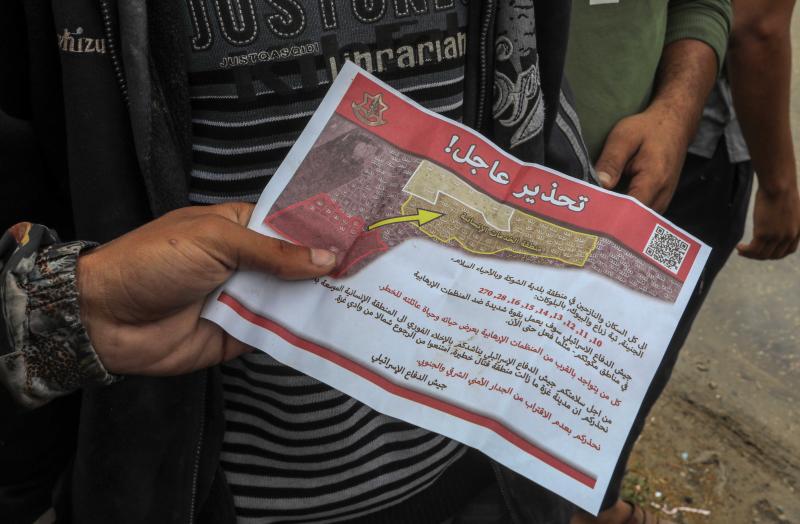 JUSTONE
JUSTQASQIDI
Librariah
hizu
تحذير عاجل!
منطقة الخدمات الإنسانية
الى كل السكان والنازحين في منطقة بلدية الشوكة وبالأحياء السلام،
الجنينة، تبة زراع والبيوك، بالبلوكات:
10, 11, 12, 13, 14, 15, 16, 28, 270
جيش الدفاع الاسرائيلي سوف يعمل بقوة شديدة ضد المنظمات الإرهابية
في مناطق مكوثكم، مثلما فعل حتى الآن.
كل من يتواجد بالقرب من المنظمات الإرهابية يعرض حياته وحياة عائلته للخطر.
من اجل سلامتكم جيش الدفاع الإسرائيلي يناشدكم بالإخلاء الفوري الى المنطقة الإنسانية الموسعة
نحذركم ان مدينة غزة ما زالت منطقة قتال خطيرة، امتنعوا من الرجوع شمالا من وادي غزة.
نحذركم بعدم الاقتراب من الجدار الأمني الشرقي والجنوبي.
جيش الدفاع الإسرائيلي